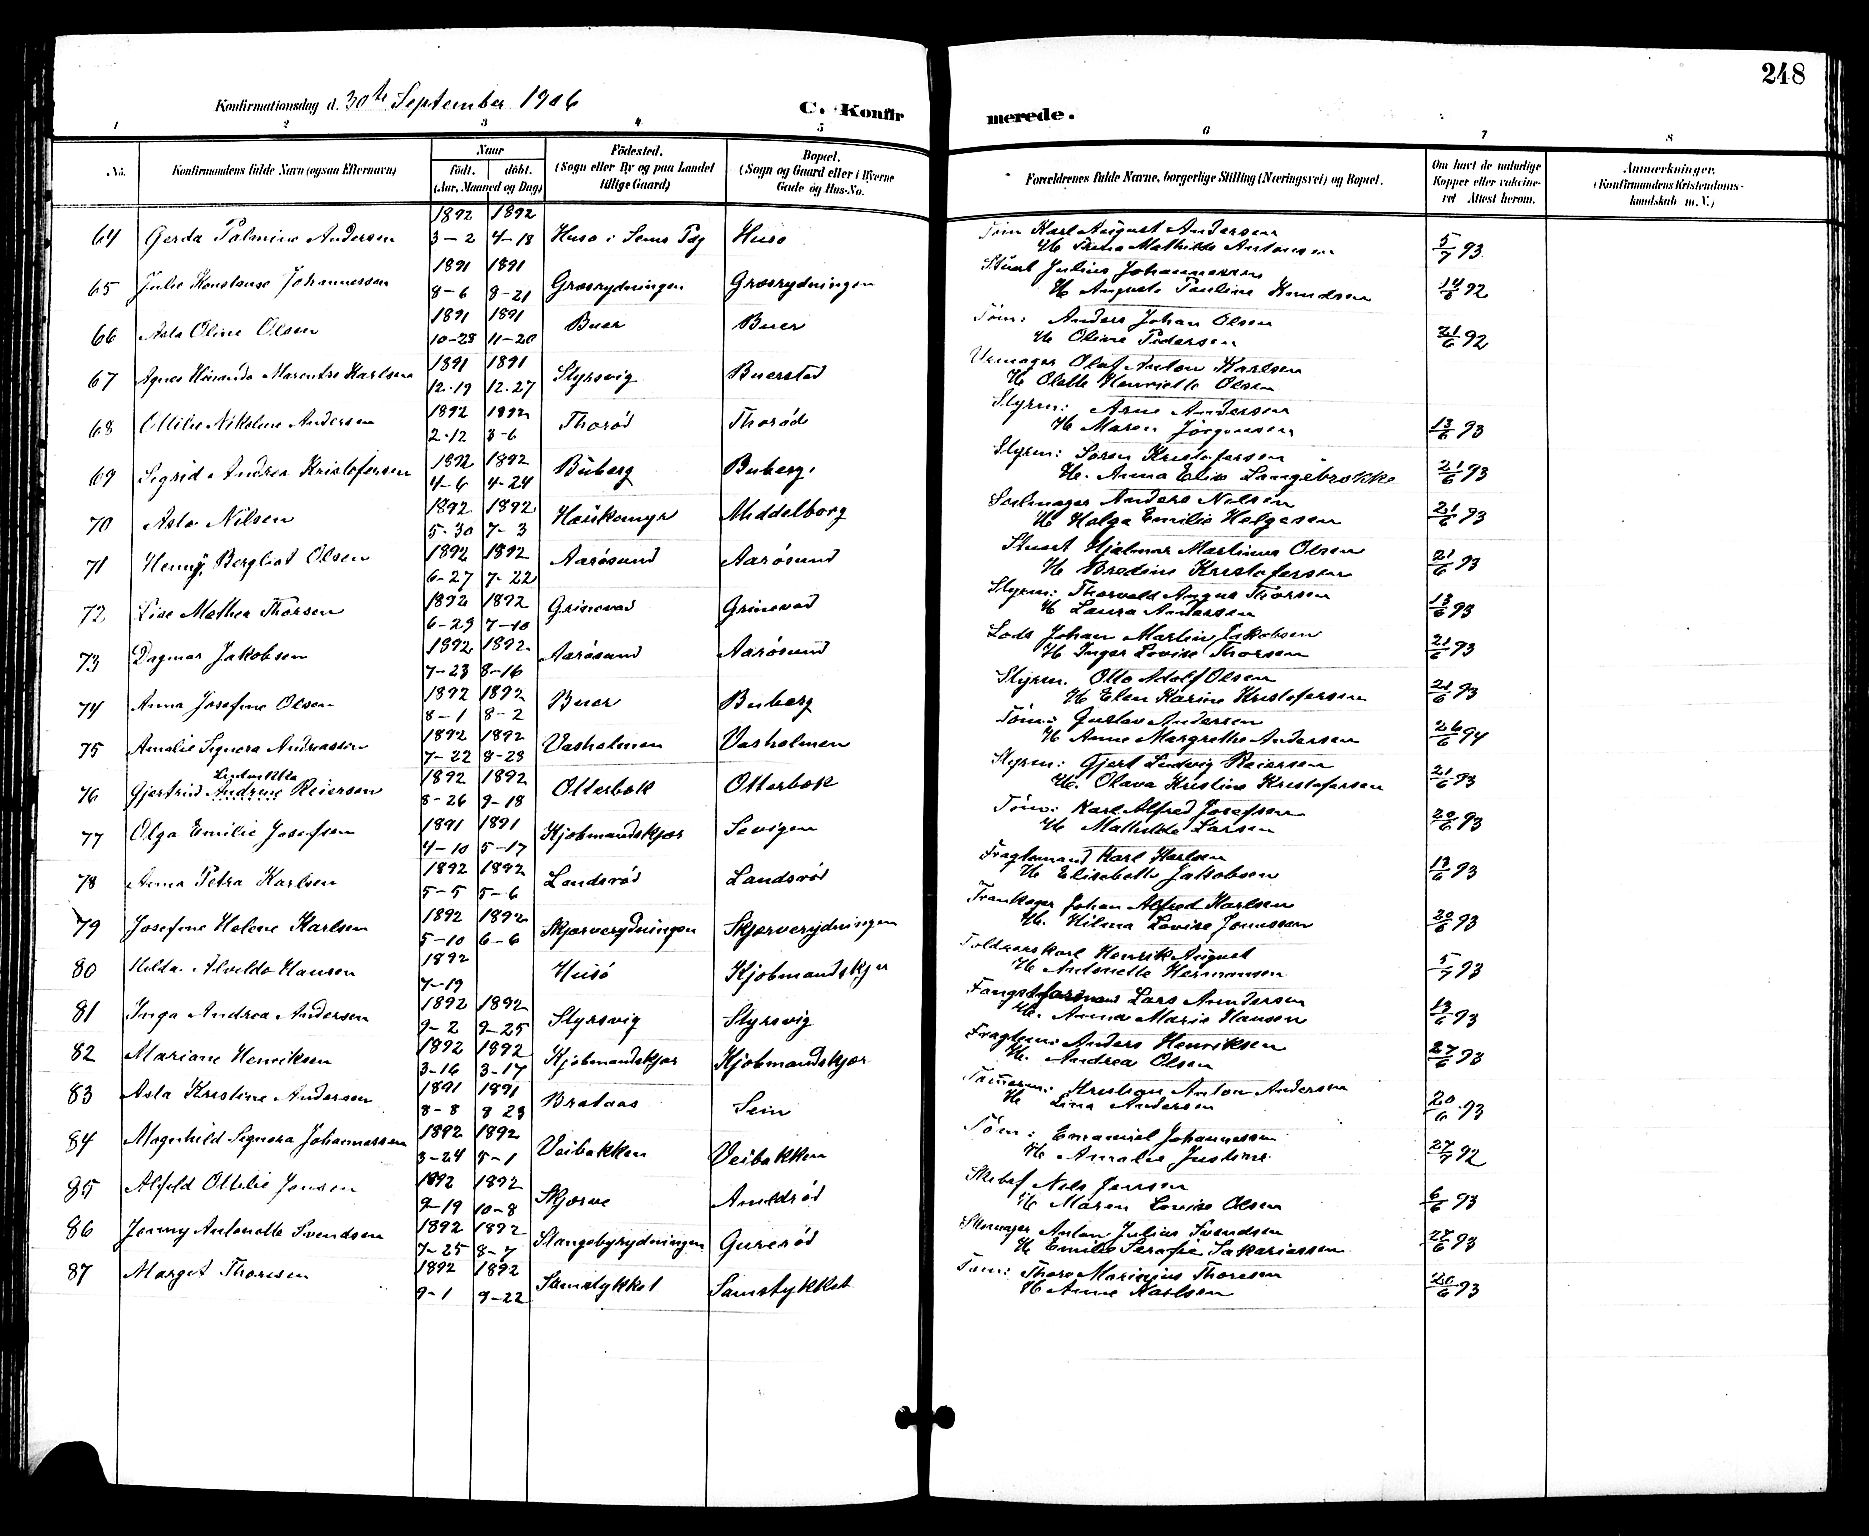 248
Konfirmationsdag d. 30te September 1906
C. Konfirmerede.
1 2 3 4 5 6 7 8
No.
Konfirmandens fulde Navn (ogsaa Efternavn)
Naar
født. døbt.
(Aar, Maaned og Dag)
Fødested.
(Sogn eller By og paa Landet tillige Gaard)
Bopæl.
(Sogn og Gaard eller i Byerne Gade og Hus-No.
Forældrenes fulde Navne, borgerlige Stilling (Næringsvei) og Bopæl.
Om havt de naturlige Kopper eller vaccineret. Attest herom.
Anmærkninger.
(Konfirmandens Kristendomskundskab m. V.)
64 Gerda Palmine Andersen 1892 3-2 1892 4-18 Husø i Sems Pdg Husø Tøm Karl August Andersen H Trina Mathilde Antonsen 5/7 93
65 Julie Konstanse Johannessen 1891 8-6 1891 8-21 Græsrydningen Græsrydningen Stuert Julius Johannessen H Augusta Pauline Knudsen 14/6 92
66 Asta Oline Olsen 1891 10-28 1891 11-20 Buer Buer Tøm: Anders Johan Olsen H Oline Pedersen 21/6 92
67 Agnes Marentse Karlsen 1891 12-19 1891 12-27 Styrsvig Buerstad Urmager Olaf Anton Karlsen H Olette Henriette Olsen
68 Ottilie Nikoline Andersen 1892 2-12 1892 3-6 Thorød Thorød Styrm: Arne Andersen H Maren Jørgensen 13/6 93
69 Sigrid Andrea Kristofersen 1892 4-6 1892 4-24 Buberg Buberg Styrm: Søren Kristofersen H. Anna Elise Langebrekke 21/6 93
70 Asta Nilsen 1892 5-30 1892 7-3 Middelborg Seilmager Anders Nilsen H Helga Emilie Helgesen 21/6 93
71 Henny Bergliot Olsen 1892 6-27 1892 7-22 Aarøsund Aarøsund Stuert Hjalmar Martinus Olsen H Bredine Kristofersen 21/6 93
72 Lise Mathea Thorsen 1892 6-29 1892 7-10 Grinevad Grinevad Styrm: Thorvald August Thorsen H Laura Andersen 13/6 93
73 Dagmar Jakobsen 1892 7-23 1892 8-16 Aarøsund Aarøsund Lods Johan Martin Jakobsen H Inger Lovise Thorsen 21/6 93
74 Anna Josefine Olsen 1892 8-1 1892 8-2 Buer Buberg Styrm. Otto Adolf Olsen H Elen Karine Kristofersen 21/6 93
75 Amalie Signora Andreassen 1892 7-22 1892 8-28 Vasholmen Vasholmen Tøm: Gustav Andersen H Anne Margrethe Andersen 26/6 94
76 Gjertrud Andrine Reiersen 1892 8-26 1892 9-18 Otterbæk Otterbæk Styrm: Gjert Ludvig Reiersen H. Olava Kristine Kristofersen 21/6 93
77 Olga Emilie Josefsen 1891 4-10 1891 5-17 Kjøbmandskjær Sevigen Tøm: Karl Alfred Josefsen H Mathilde Larsen 20/6 93
78 Anna Petra Karlsen 1892 5-5 1892 5-6 Landsrød Landsrød Fragtemand Karl Karlsen H Elisabeth Jakobsen 13/6 93
79 Josefine Helene Karlsen 1892 5-10 1892 6-6 Skjærverydningen Skjærverydningen Trankoger Johan Alfred Karlsen H. Hilma Lovise Jonassen 20/6 93
80 Hilda Alvilda Hansen 1892 7-19 Husø Kjøbmandskjær Henrik August H Antonette Hermansen 5/7 93
81 Inga Andrea Andersen 1892 9-2 1892 9-25 Styrsvig Styrsvig Fangstmand Lars Andersen H. Anna Marie Hansen 13/6 93
82 Mariane Henriksen 1892 3-16 1892 3-17 Kjøbmandskjær Kjøbmandskjær Fragtem: Anders Henriksen H. Andrea Olsen 27/6 93
83 Asta Kristine Andersen 1891 8-8 1891 8 23 Brataas Sem Tømmerm: Kristian Anton Andersen H Lina Andersen 20/6 93
84 Magnhild Signora Johannessen 1892 3-24 1892 5-1 Veibakken Veibakken Tøm: Emanuel Johannessen H Amalie Justine 27/7 92
85 Alfhild Ottilie Jensen 1892 9-19 1892 10-8 Skjærve Arnedrød Skibsf Nils Jensen H Maren Lovise Olsen 6/6 93
86 Jenny Antonette Svendsen 1892 7-25 1892 8-7 Stangebyrydningen Gurerød Anton Julius Svendsen H Emilie Serafie Sakariassen 27/6 93
87 Marget Thoresen 1892 9-1 1892 9-22 Samstykket Samstykket Tøm: Thore Marinius Thoresen H Anne Karlsen 20/6 93